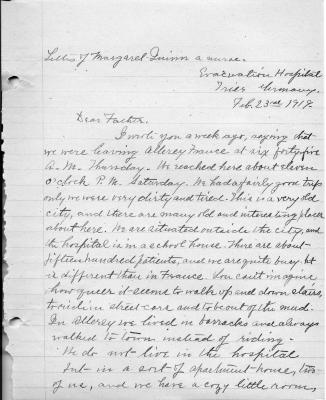 Letters of Margaret Quinn a nurse.
Evacuation Hospital
Trier Germany.
Feb. 23rd 1919.
Dear Father.
I wrote you a week ago, saying that
we were leaving Allerey France at six forty five
A.M. Thursday. We reached here about eleven
o'clock P.M. Saturday. We had a fairly good trip
only we were very dirty and tired. This is a very old
city, and there are many old and interesting places
about here. We are situated outside the city, and
the hospital is in a school house. There are about
fifteen hundred patients, and we are quite busy. It
is different than in France. You can't imagine
how queer it seems to walk up and down stairs,
to ride in street-cars and to be out of the mud.
In Allerey we lived in barracks and always
walked to town instead of riding.
We do not live in the hospital
but in a sort of apartment house, two
of us, and we have a cozy little room,